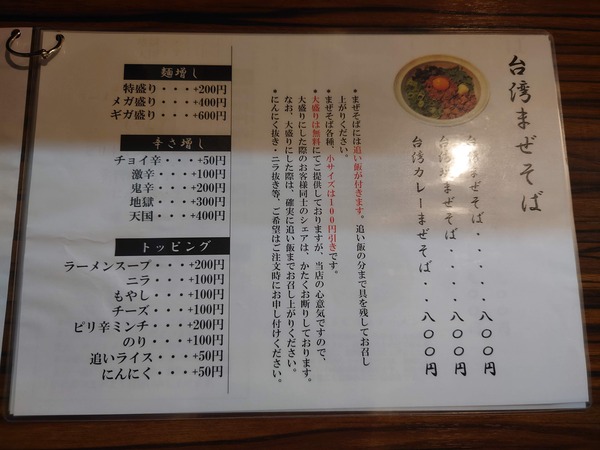 台湾まぜそば
台湾まぜそば・・・・・八〇〇円
台湾塩まぜそば・・・・八〇〇円
台湾カレーまぜそば・・八〇〇円
●まぜそばには追い飯が付きます。追い飯の分まで具を残してお召し
上がりください。
●まぜそば各種、小サイズは100円引きです。
●大盛りは無料にてご提供しておりますが、当店の心意気ですので、
大盛りにした際のお客様同士のシェアは、かたくお断りしております。
なお、大盛りにした際は、確実に追い飯までお召し上がりください。
●にんにく抜き・ニラ抜き等、ご希望はご注文時にお申し付けください。
麺増し
特盛り・・・+200円
メガ盛り・・・+400円
ギガ盛り・・・+600円
辛さ増し
チョイ辛・・・+50円
激辛・・・+100円
鬼辛・・・+200円
地獄・・・+300円
天国・・・+400円
トッピング
ラーメンスープ・・・+200円
ニラ・・・+100円
もやし・・・+100円
チーズ・・・+100円
ピリ辛ミンチ・・・+200円
のり・・・+100円
追いライス・・・+50円
にんにく・・・+50円